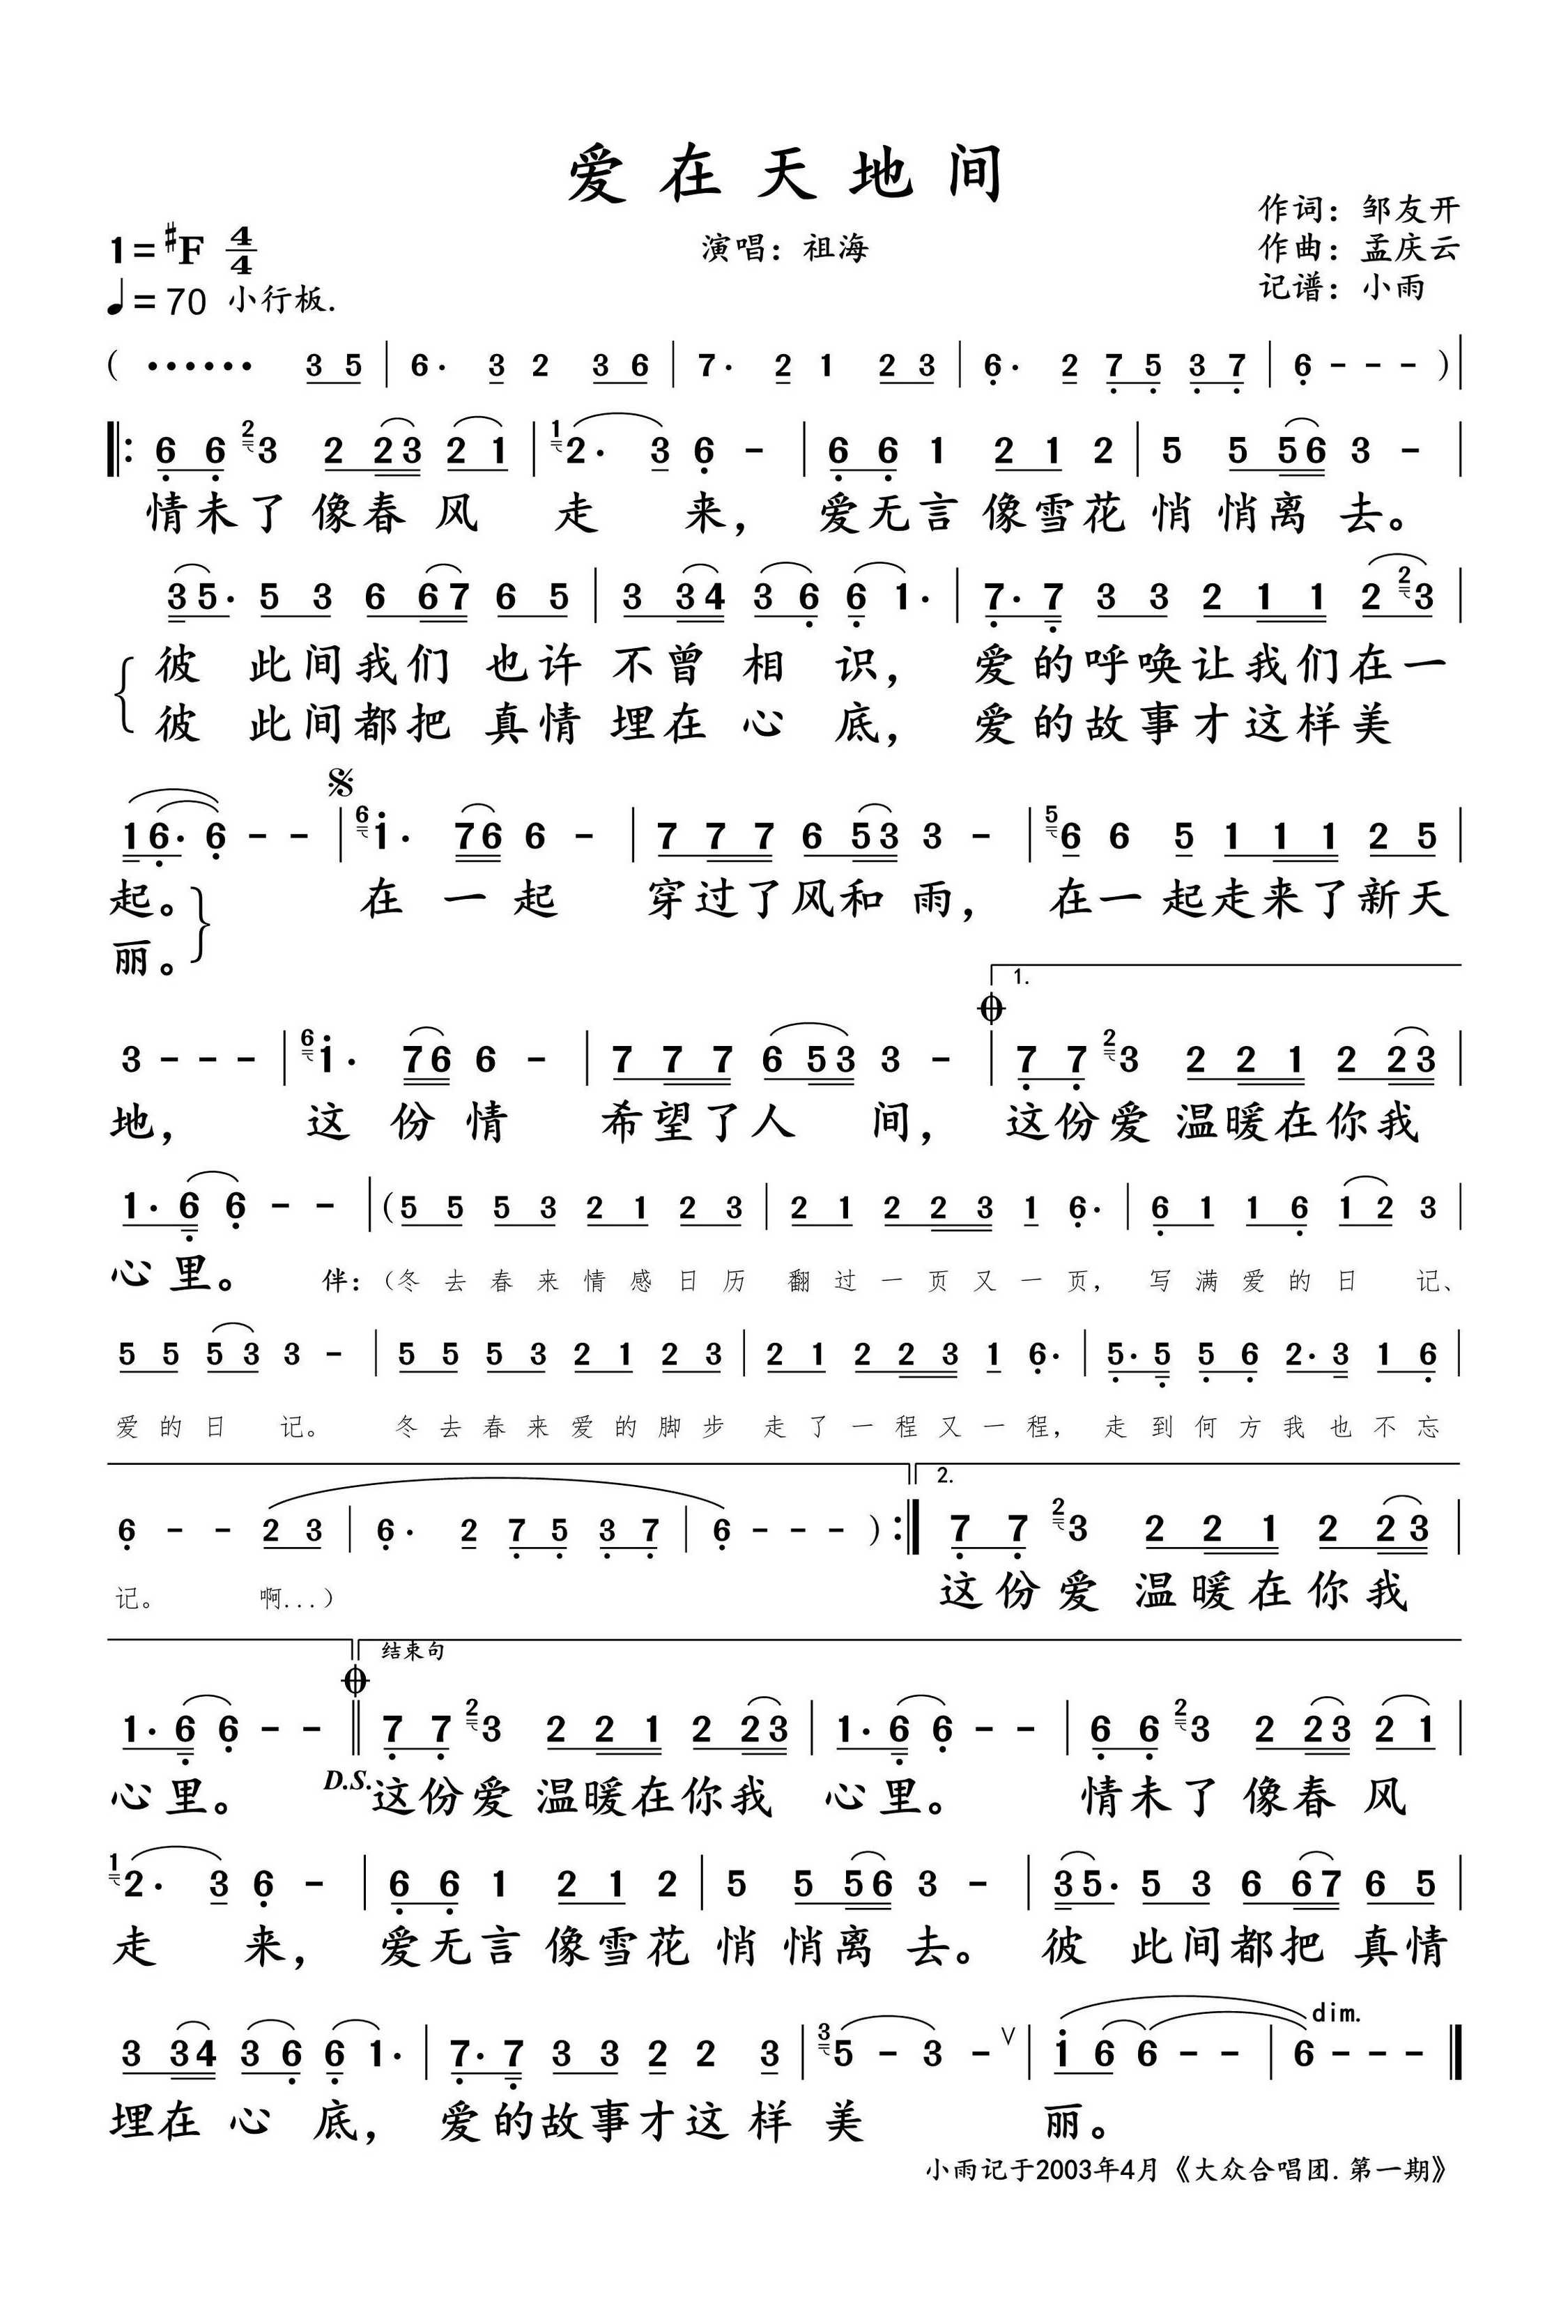 爱在天地间
作词：邹友开
1=#F 4/4
演唱：祖海
作曲：孟庆云
♩=70 小行板.
记谱：小雨
( •••••• 3 5 | 6· 3 2 3 6 | 7· 2 1 2 3 | 6· 2 7 5 3 7 | 6 - - - ) |
‖: 6 6 2 3 2 2 3 2 1 | 1 2· 3 6 - | 6 6 1 2 1 2 | 5 5 5 6 3 - |
情未了像春风 走 来， 爱无言像雪花悄悄离去。
3 5· 5 3 6 6 7 6 5 | 3 3 4 3 6 6 1· | 7· 7 3 3 2 1 1 2 2 3 |
彼 此间我们 也许 不曾 相 识， 爱的呼唤让我们在一
彼 此间都把 真情 埋在 心 底， 爱的故事才这样美
𝄋
1 6· 6 - - | 6 i· 7 6 6 - | 7 7 7 6 5 3 3 - | 5 6 6 5 1 1 1 2 5 |
起。 在 一 起 穿过了风和 雨， 在一 起走来了新天
丽。
1.
3 - - - | 6 i· 7 6 6 - | 7 7 7 6 5 3 3 - | 7 7 2 3 2 2 1 2 2 3 |
地， 这 份 情 希望了人 间， 这份爱 温暖在你我
1· 6 6 - - | ( 5 5 5 3 2 1 2 3 | 2 1 2 2 3 1 6· | 6 1 1 6 1 2 3 |
心里。 伴：（冬去春来情感日历 翻过一页又一页， 写满爱的日 记、
5 5 5 3 3 - | 5 5 5 3 2 1 2 3 | 2 1 2 2 3 1 6· | 5· 5 5 6 2· 3 1 6 |
爱的日 记。 冬去春来爱的脚步 走了一程又一程， 走到何方我也不忘
2.
6 - - 2 3 | 6· 2 7 5 3 7 | 6 - - - ) :‖ 7 7 2 3 2 2 1 2 2 3 |
记。 啊...） 这份爱 温暖在你我
结束句
1· 6 6 - - ‖ 7 7 2 3 2 2 1 2 2 3 | 1· 6 6 - - | 6 6 2 3 2 2 3 2 1 |
心里。 D.S. 这份爱 温暖在你我 心里。 情未了 像春 风
1 2· 3 6 - | 6 6 1 2 1 2 | 5 5 5 6 3 - | 3 5· 5 3 6 6 7 6 5 |
走 来， 爱无言 像雪花 悄 悄离 去。 彼 此间都把 真情
dim.
3 3 4 3 6 6 1· | 7· 7 3 3 2 2 3 | 3 5 - 3 - ∨ | i 6 6 - - | 6 - - - ‖
埋在 心 底， 爱的故事才这 样 美 丽。
小雨记于2003年4月《大众合唱团.第一期》